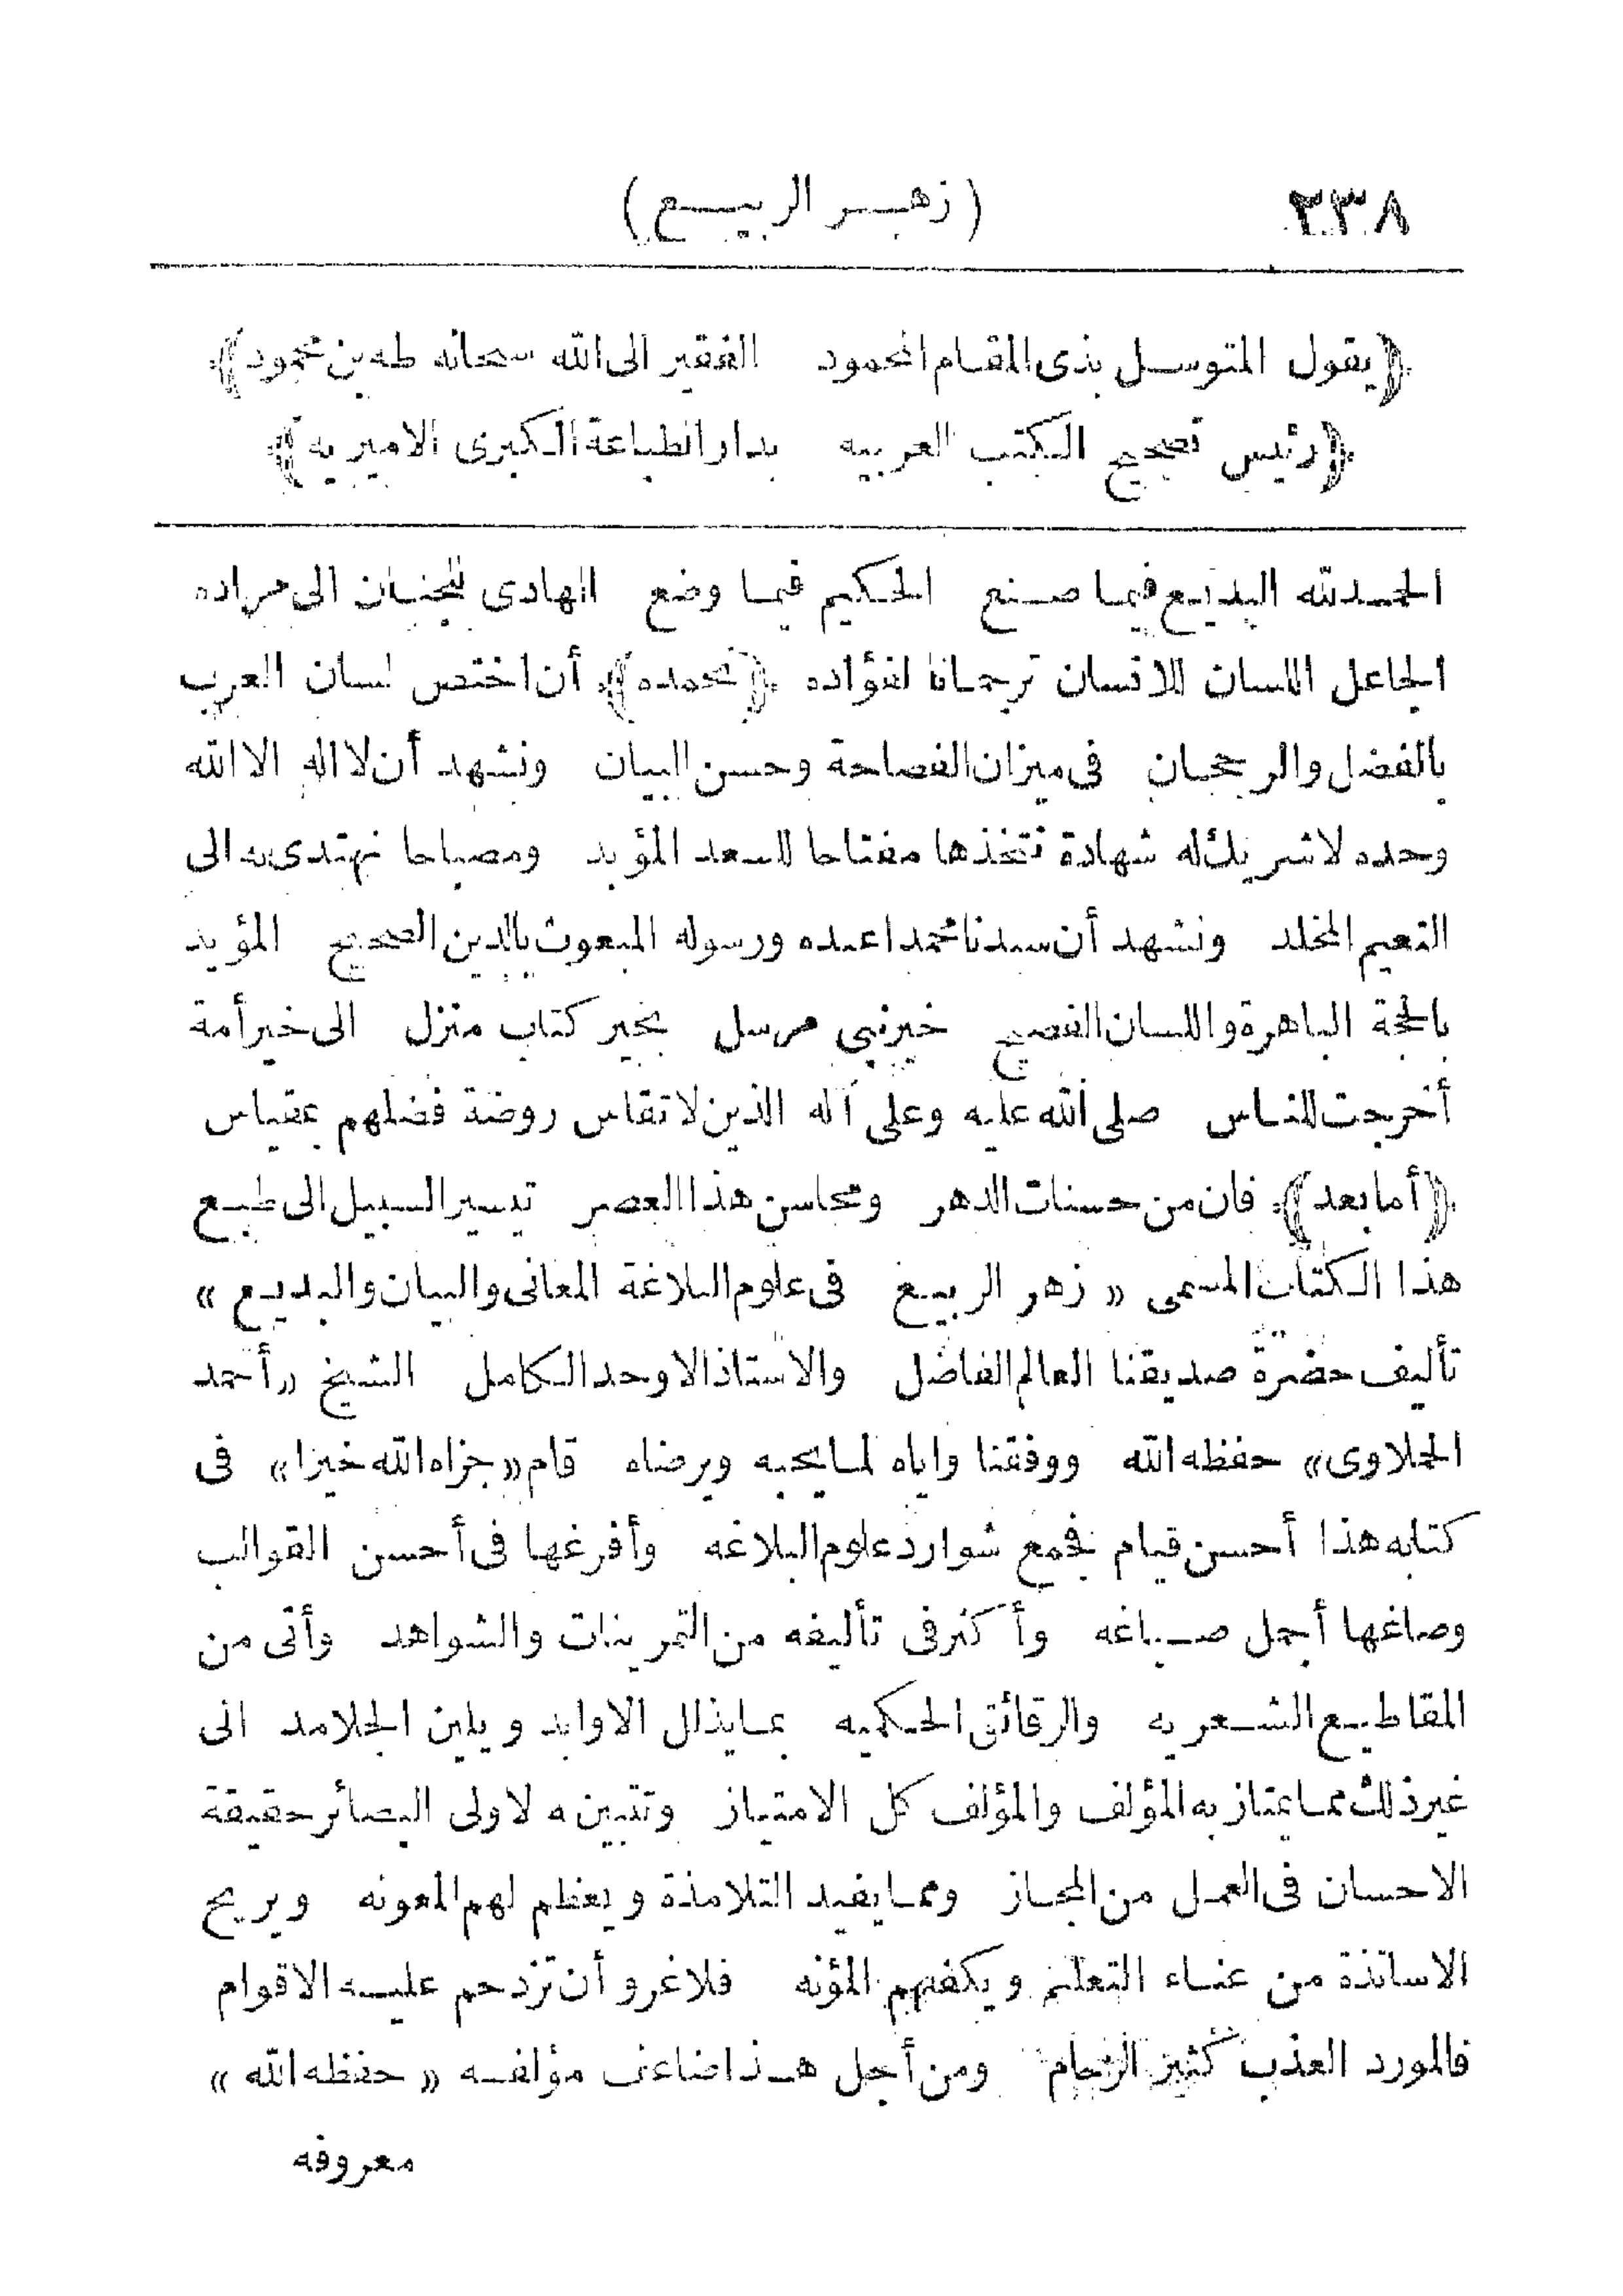 ٢٣٨ (زهر الربيع)
﴿يقول المتوسل بذى المقام المحمود الفقير الى الله سبحانه طه بن محمود﴾
﴿رئيس تصحيح الكتب العربيه بدار الطباعة الكبرى الاميريه﴾
الحمد لله البديع فيما صنع الحكيم فيما وضع الهادى للجنان الى مراده
الجاعل اللسان للانسان ترجمانا لفؤاده ﴿نحمده﴾ أن اختص لسان العرب
بالفضل والرجحان فى ميزان الفصاحة وحسن البيان ونشهد أن لا اله الا الله
وحده لا شريك له شهادة نتخذها مفتاحا للسعد المؤبد ومصباحا نهتدى به الى
النعيم المخلد ونشهد أن سيدنا محمدا عبده ورسوله المبعوث بالدين الصحيح المؤيد
بالحجة الباهرة واللسان الفصيح خير نبى مرسل بخير كتاب منزل الى خير أمة
أخرجت للناس صلى الله عليه وعلى آله الذين لا تقاس روضة فضلهم بمقياس
﴿أما بعد﴾ فان من حسنات الدهر ومحاسن هذا العصر تيسير السبيل الى طبع
هذا الكتاب المسمى « زهر الربيع فى علوم البلاغة المعانى والبيان والبديع »
تأليف حضرة صديقنا العالم الفاضل والاستاذ الاوحد الكامل الشيخ «أحمد
الحملاوى» حفظه الله ووفقنا واياه لما يحبه ويرضاه قام «جزاه الله خيرا» فى
كتابه هذا أحسن قيام فجمع شوارد علوم البلاغه وأفرغها فى أحسن القوالب
وصاغها أجمل صياغه وأكثر فى تأليفه من التمرينات والشواهد وأتى من
المقاطيع الشعريه والرقائق الحكميه بما يذلل الاوابد ويلين الجلامد الى
غير ذلك مما يمتاز به المؤلف والمؤلف كل الامتياز وتتبين به لاولى البصائر حقيقة
الاحسان فى العمل من المجاز ومما يفيد التلامذة ويعظم لهم المعونه ويريح
الاساتذة من عناء التعليم ويكفيهم المؤنه فلا غرو أن تزدحم عليه الاقوام
فالمورد العذب كثير الزحام ومن أجل هذا ضاعف مؤلفه « حفظه الله »
معروفه